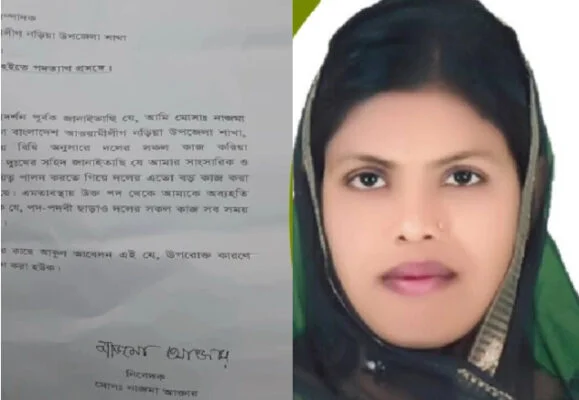 ম্পাদক
লীগ নড়িয়া উপজেলা শাখা
হইতে পদত্যাগ প্রসঙ্গে।
দর্শন পূর্বক জানাইতাছি যে, আমি মোসাঃ নাজমা
বাংলাদেশ আওয়ামীলীগ নড়িয়া উপজেলা শাখা,
বিধি অনুসারে দলের সকল কাজ করিয়া
দুঃখের সহিত জানাইতাছি যে আমার সাংসারিক ও
পালন করতে গিয়ে দলের এতো বড় কাজ করা
এমতাবস্থায় উক্ত পদ থেকে আমাকে অব্যহতি
যে, পদ-পদবী ছাড়াও দলের সকল কাজ সব সময়
কাছে আকুল আবেদন এই যে, উপরোক্ত কারণে
করা হউক।
নাজমা আক্তার
নিবেদক
মোসাঃ নাজমা আক্তার